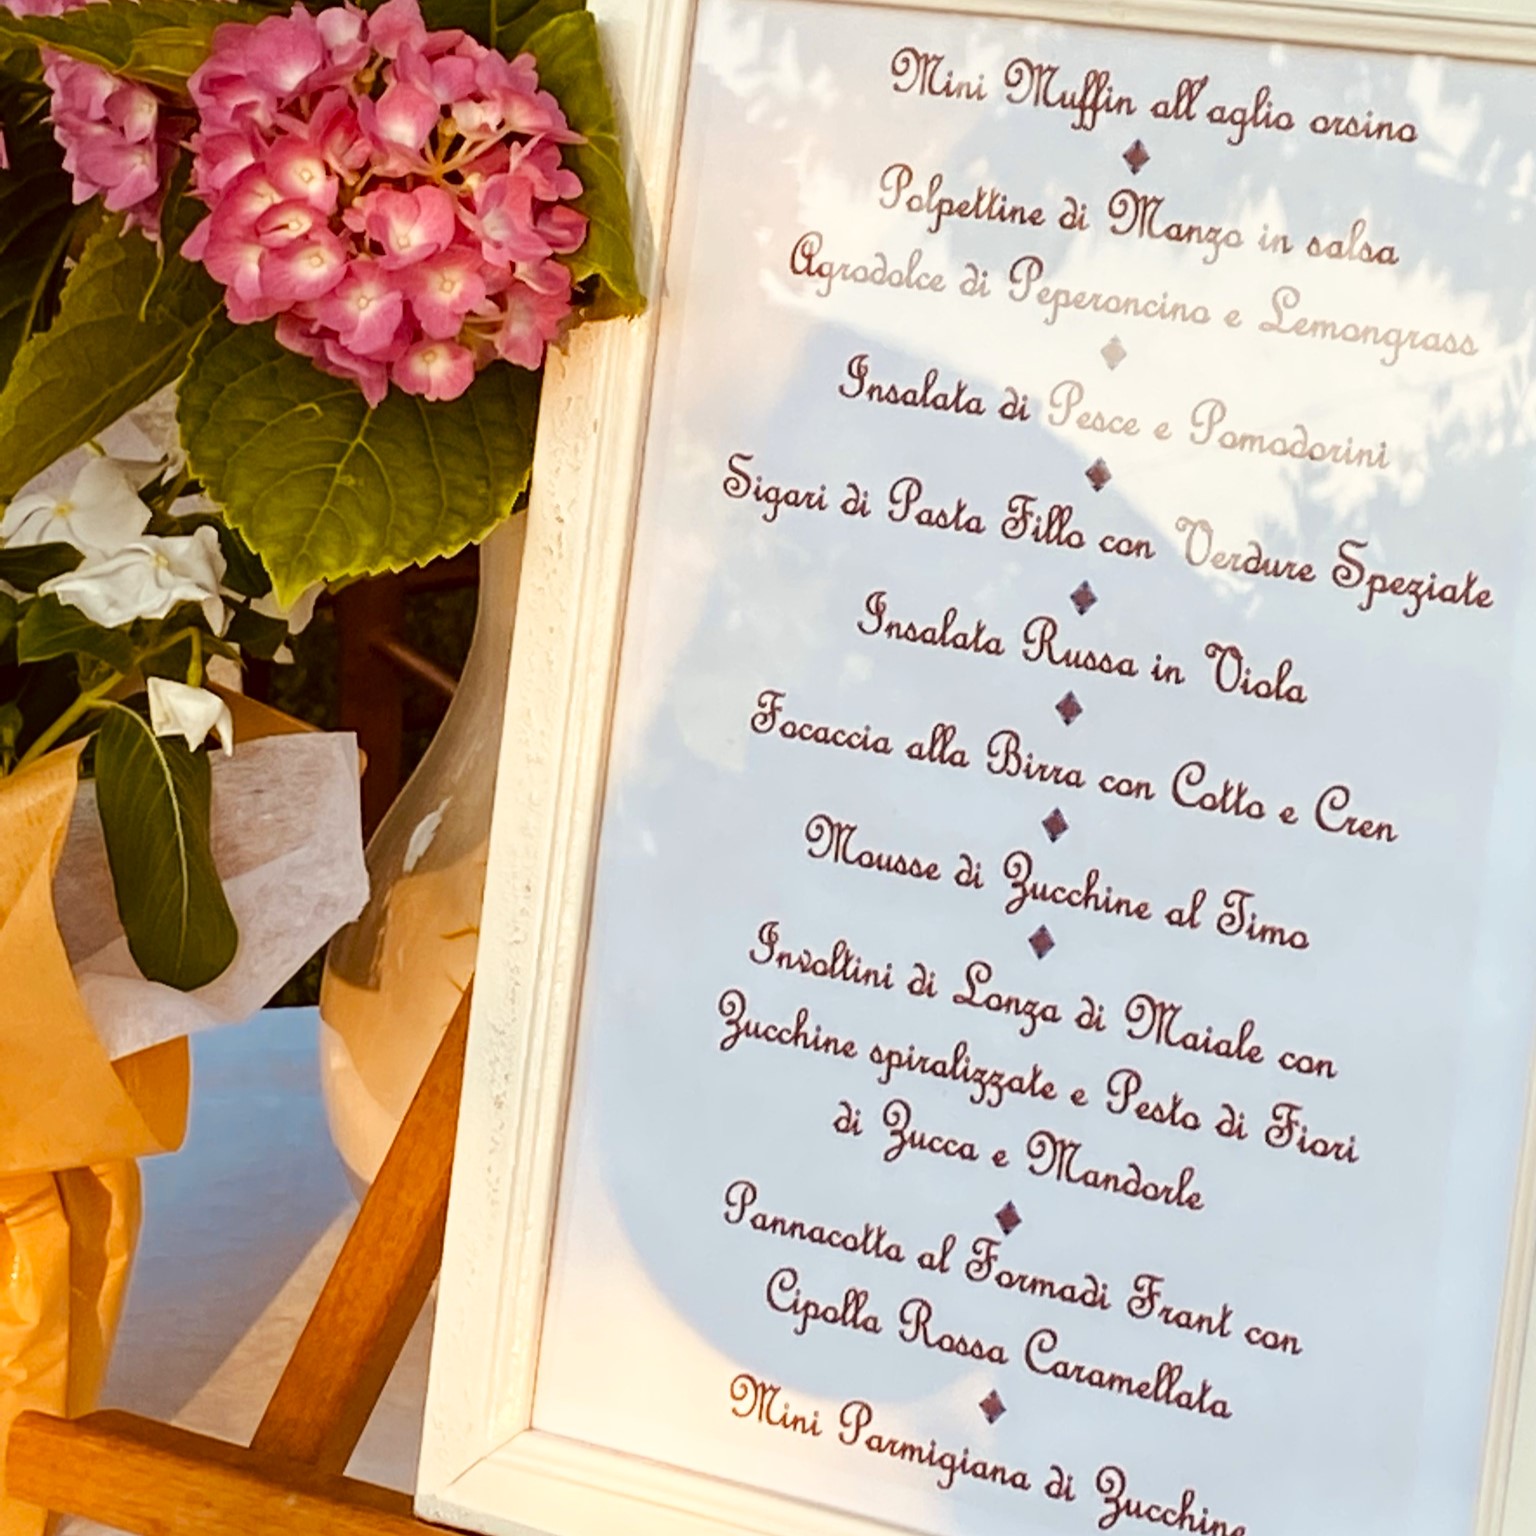 Mini Muffin all'aglio orsino
Polpettine di Manzo in salsa
Agrodolce di Peperoncino e Lemongrass
Insalata di Pesce e Pomodorini
Sigari di Pasta Fillo con Verdure Speziate
Insalata Russa in Viola
Focaccia alla Birra con Cotto e Cren
Mousse di Zucchine al Timo
Involtini di Lonza di Maiale con
Zucchine spiralizzate e Pesto di Fiori
di Zucca e Mandorle
Pannacotta al Formadi Frant con
Cipolla Rossa Caramellata
Mini Parmigiana di Zucchine